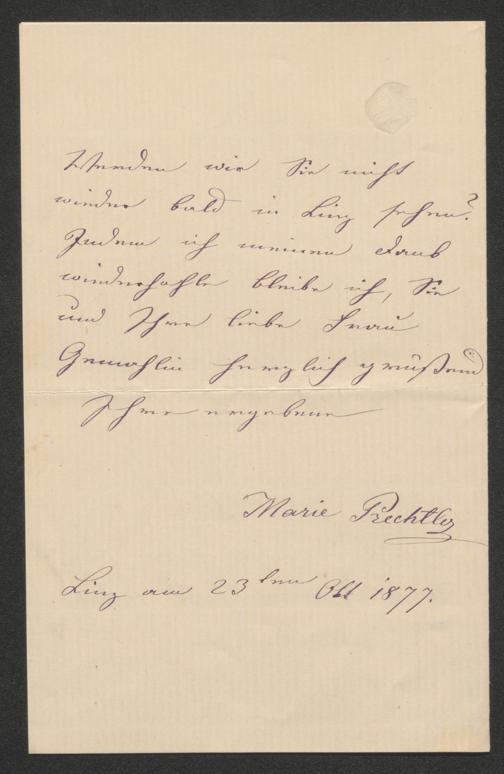 Werden wir Sie nicht
wieder bald in Linz sehen?
Indem ich meinen Dank
wiederhohle bleibe ich, Sie
und Ihre liebe Frau
Gemahlin herzlich grüßend
Ihre ergebene
Marie Prechtler
Linz am 23ten Okt 1877.